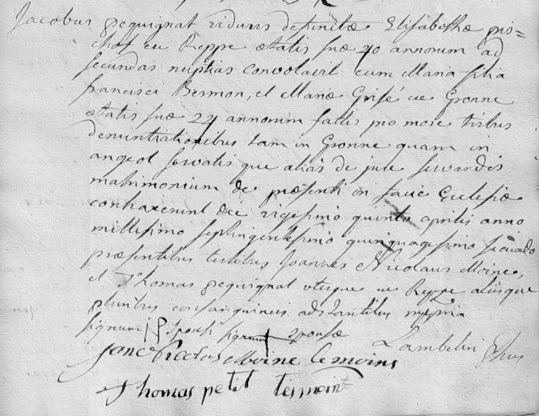 Jacobus pequignat viduus defunctae Elisabethae pis=
chof ex Reppe aetatis suae 40 annorum ad
secundas nuptias convolavit cum Maria filia
francisci Bermon, et Mariae Grisé ex Gronne
aetatis suae 24 annorum factis pro more tribus
denuntiationibus tam in Gronne quam in
angeot servatisque alias de jure servandis
matrimonium de praesenti in facie Ecclesiae
contraxerunt die vigesimo quinto aprilis anno
millesimo septingentesimo quinquagesimo secundo
praesentibus testibus Joannes Nicolaus Moine,
et Thomas pequignat uterque ex Reppe aliisque
pluribus consanguineis adstantibus
signum sponsi signum sponsae
Lambelin
Jane Nicolas Moine temoins
Thomas petit temoint